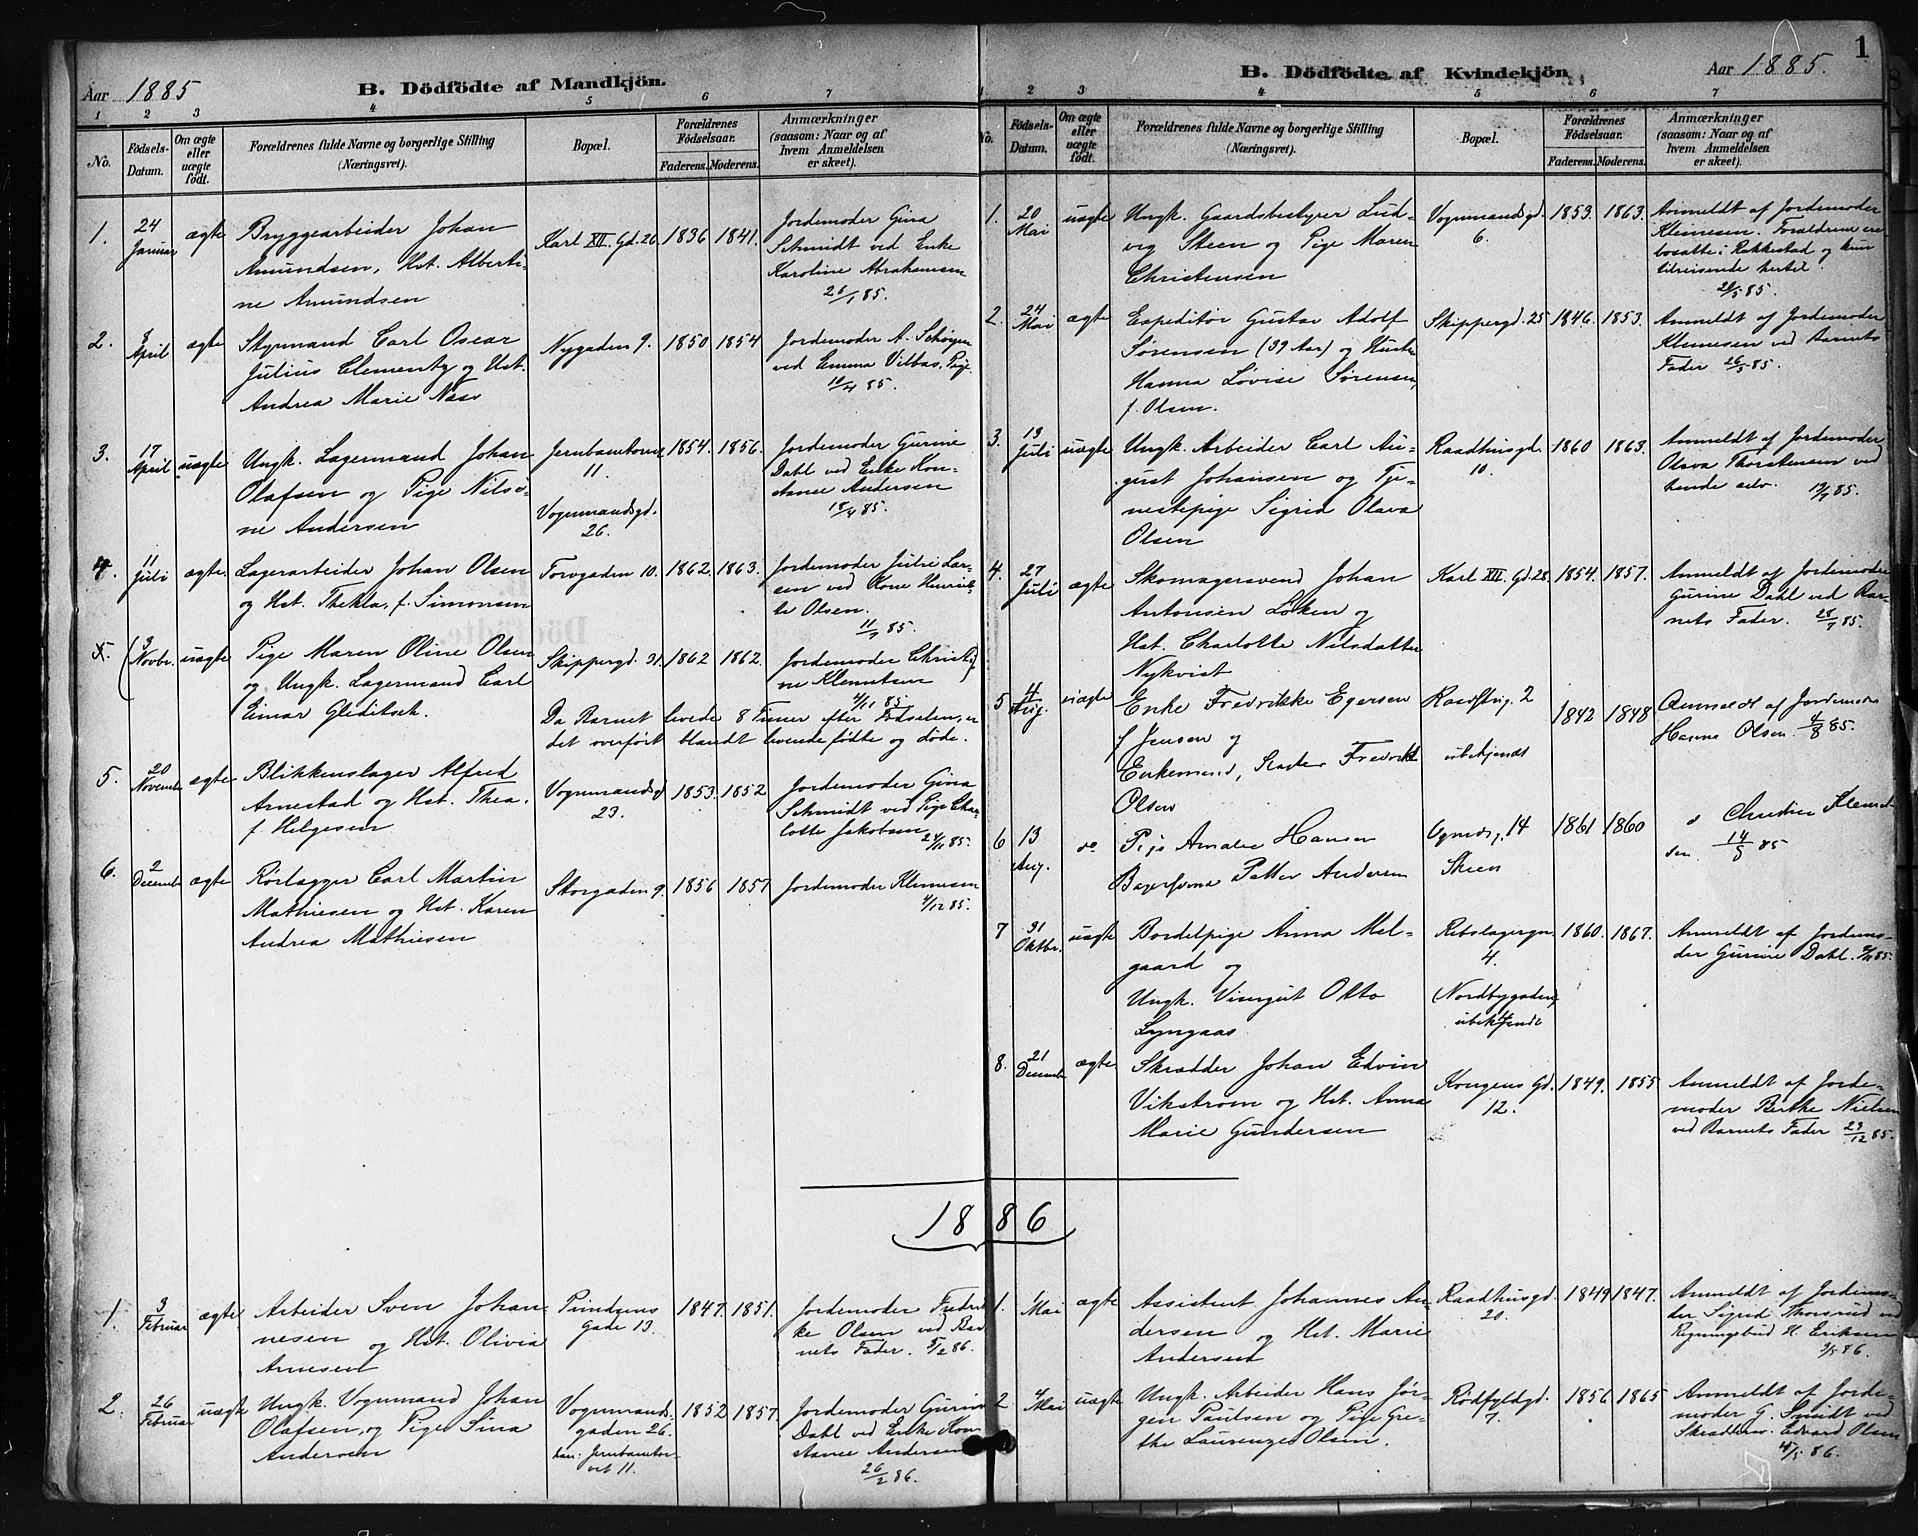 Aar 1885
B. Dödfödte af Mandkjön.
1 2 3 4 5 6 7
No. Födsels-Datum. Om ægte eller uægte födt. Forældrenes fulde Navne og borgerlige Stilling (Næringsvei). Bopæl. Forældrenes Födselsaar. Faderens. Moderens. Anmærkninger (saasom: Naar og af hvem Anmeldelsen er skeet).
1. 24 Januar ægte Bryggearbeider Johan Karl XII. Gd. 26 1836 1841. Jordemoder Gina
Amundsen, Hst. Alberti- Schmidt ved Enke
ne Amundsen Karoline Abrahamsen
26/1 85.
2. 9 April ægte Styrmand Carl Oscar Nygaden 9. 1850 1854 Jordemoder A.
Julius Clementz og Hst. ved Emma Pige
Andrea Marie Næss 10/4 85.
3. 17 April uægte Ungk. Lagermand Johan Jernbanetorvet 11. 1854. 1856. Jordemoder Gurine
Olafsen og Pige Nilsi- Dahl ved Enke Kon-
ne Andersen Vognmandsgd. 26. stance Andersen
18/4 85.
4. 11 Juli ægte. Lagerarbeider Johan Olsen Torvgaden 10. 1862. 1863. Jordemoder Julie Lar-
og Hst. Thekla, f. Simonsen sen ved Kone Henriet-
te Olsen.
11/7 85.
5. (3 Novbr. uægte Pige Maren Oline Olsen Skippergd. 31. 1862 1862. Jordemoder Christi-
og Ungk. Lagermand Carl ne Klemetsen )
Einar Gleditsch. 4/11 85
Da Barnet levede 8 Timer efter Fødselen, er
det overført blandt levende fødte og døde.
5. 20 Novemb. ægte Blikkenslager Alfred Vognmandsgd 23. 1853. 1852 Jordemoder Gina
Arnestad og Hst. Thea, Schmidt ved Pige Char-
f. Helgesen lotte Jakobsen 24/11 85.
6. 2 Decemb. ægte Rørlægger Carl Martin Storgaden 9. 1856 1857 Jordemoder Klemesen
Mathiesen og Hst. Karen 4/12 85.
Andrea Mathiesen
1886
1. 3 Februar ægte Arbeider Sven Johan- Gade 13. 1847. 1851. Jordemoder Fredrik-
nesen og Hst. Olivia ke Olsen ved Bar-
Arnesen nets Fader. 5/2 86.
2. 26 Februar uægte Ungk. Vognmand Johan Vognmands- 1852 1857. Jordemoder Gurine
Olafsen, og Pige Sina gaden 26. Dahl ved Enke Kon-
Andersen han: Jernbanetor- stance Andersen
vet 11. 26/2 86.
B. Dödfödte af Kvindekjön
Aar 1885.
1
1 2 3 4 5 6 7
No. Födsels-Datum. Om ægte eller uægte födt. Forældrenes fulde Navne og borgerlige Stilling (Næringsvei). Bopæl. Forældrenes Födselsaar. Faderens. Moderens. Anmærkninger (saasom: Naar og af hvem Anmeldelsen er skeet).
1. 20 Mai uægte Ungk. Gaardsbestyrer Lud- Vognmandsgd. 6. 1853. 1863. Anmeldt af Jordemoder
vig Steen og Pige Maren Klemesen. Forældrene ere
Christensen bosatte i Rakkestad og kun
tilreisende hertil.
20/5 85.
2. 24 Mai ægte Expeditør Gustav Adolf Skippergd. 25 1846. 1853. Anmeldt af Jordemoder
Sørensen (39 Aar) og Hustru Klemesen ved Barnets
Hanna Lovise Sørensen, Fader 26/5 85.
f. Olsen.
3. 13 Juli uægte Ungk. Arbeider Carl Au- Raadhusgd. 10. 1860 1863. Anmeldt af Jordemoder
gust Johansen og Tje- Olava Thorstensen ved
nestepige Sigrid Olava hende selv.
Olsen
4. 27 Juli ægte Skomagersvend Johan Karl XII. Gd. 28. 1854. 1857. Anmeldt af Jordemoder
Antonsen Løken og Gurine Dahl ved Bar-
Hst. Charlotte Nilsdatter nets Fader. 28/7 85.
Nykvist
5 4 Aug. uægte Enke Fredrikke Egersen 2 1842 1848 Anmeldt af Jordemoder
f. Jensen og ubekjendt Hanna Olsen. 4/8 85.
Enkemand, Fredrik
Olsen
6 13 Aug. do Pige Amalie Hansen 14 1861 1860 Klemet-
Petter Andersen Skien sen. 85
7 31 Oktbr. uægte Bordelpige Anna Mel- Rebslagergn 4. 1860. 1867. Anmeldt af Jordemo-
gaard og der Gurine Dahl. 85.
Ungk. Otto (Nordbygaden)
Lyngaas ubekjendt
8. 21 Decemb. ægte Skrædder Johan Edvin Kongens Gd. 12. 1849. 1855 Anmeldt af Jorde-
Vikstrøm og Hst. Anna moder Berthe Nielsen
Marie Gundersen ved Barnets Fader 23/12 85.
1. 1 Mai ægte Assistent Johannes An- Raadhusgd. 20. 1849 1847. Anmeldt af Jordemo-
dersen og Hst. Marie der Sigrid Thorsrud ved
Andersen H. Eriksen
3/5 86.
2 4 Mai uægte Ungk. Arbeider Hans Jør- Rødfyldgd. 7. 1856. 1865 Anmeldt af Jorde-
gen Paulsen og Pige Gre- moder G. Smidt ved
the Laurenze Olsen. Edvard Olsen
4/5 86.